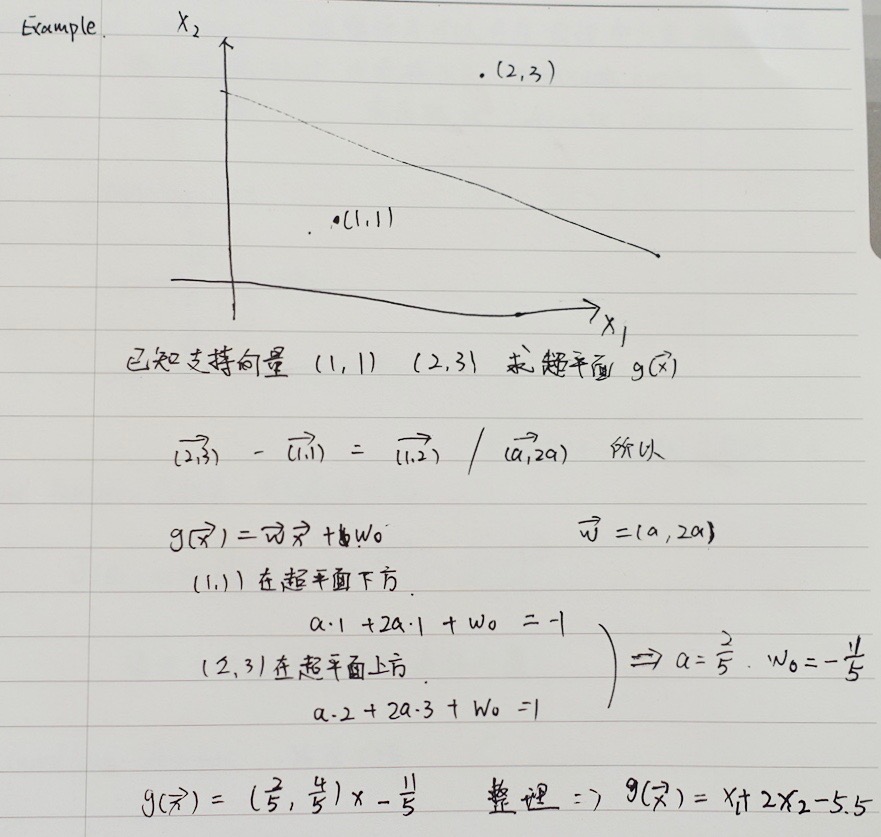 Example.
X₂
.(2,3)
.(1,1)
X₁
已知支持向量 (1,1) (2,3) 求超平面 g(x⃗)
(2,3)⃗ - (1,1)⃗ = (1,2)⃗ / (a,2a)⃗ 所以
g(x⃗) = w⃗x⃗ + w₀ w⃗ = (a, 2a)
(1,1) 在超平面下方.
a·1 + 2a·1 + w₀ = -1
(2,3) 在超平面上方.
a·2 + 2a·3 + w₀ = 1
⇒ a = 2/5 . w₀ = -11/5
g(x⃗) = (2/5, 4/5) x - 11/5 整理 => g(x⃗) = x₁ + 2x₂ - 5.5